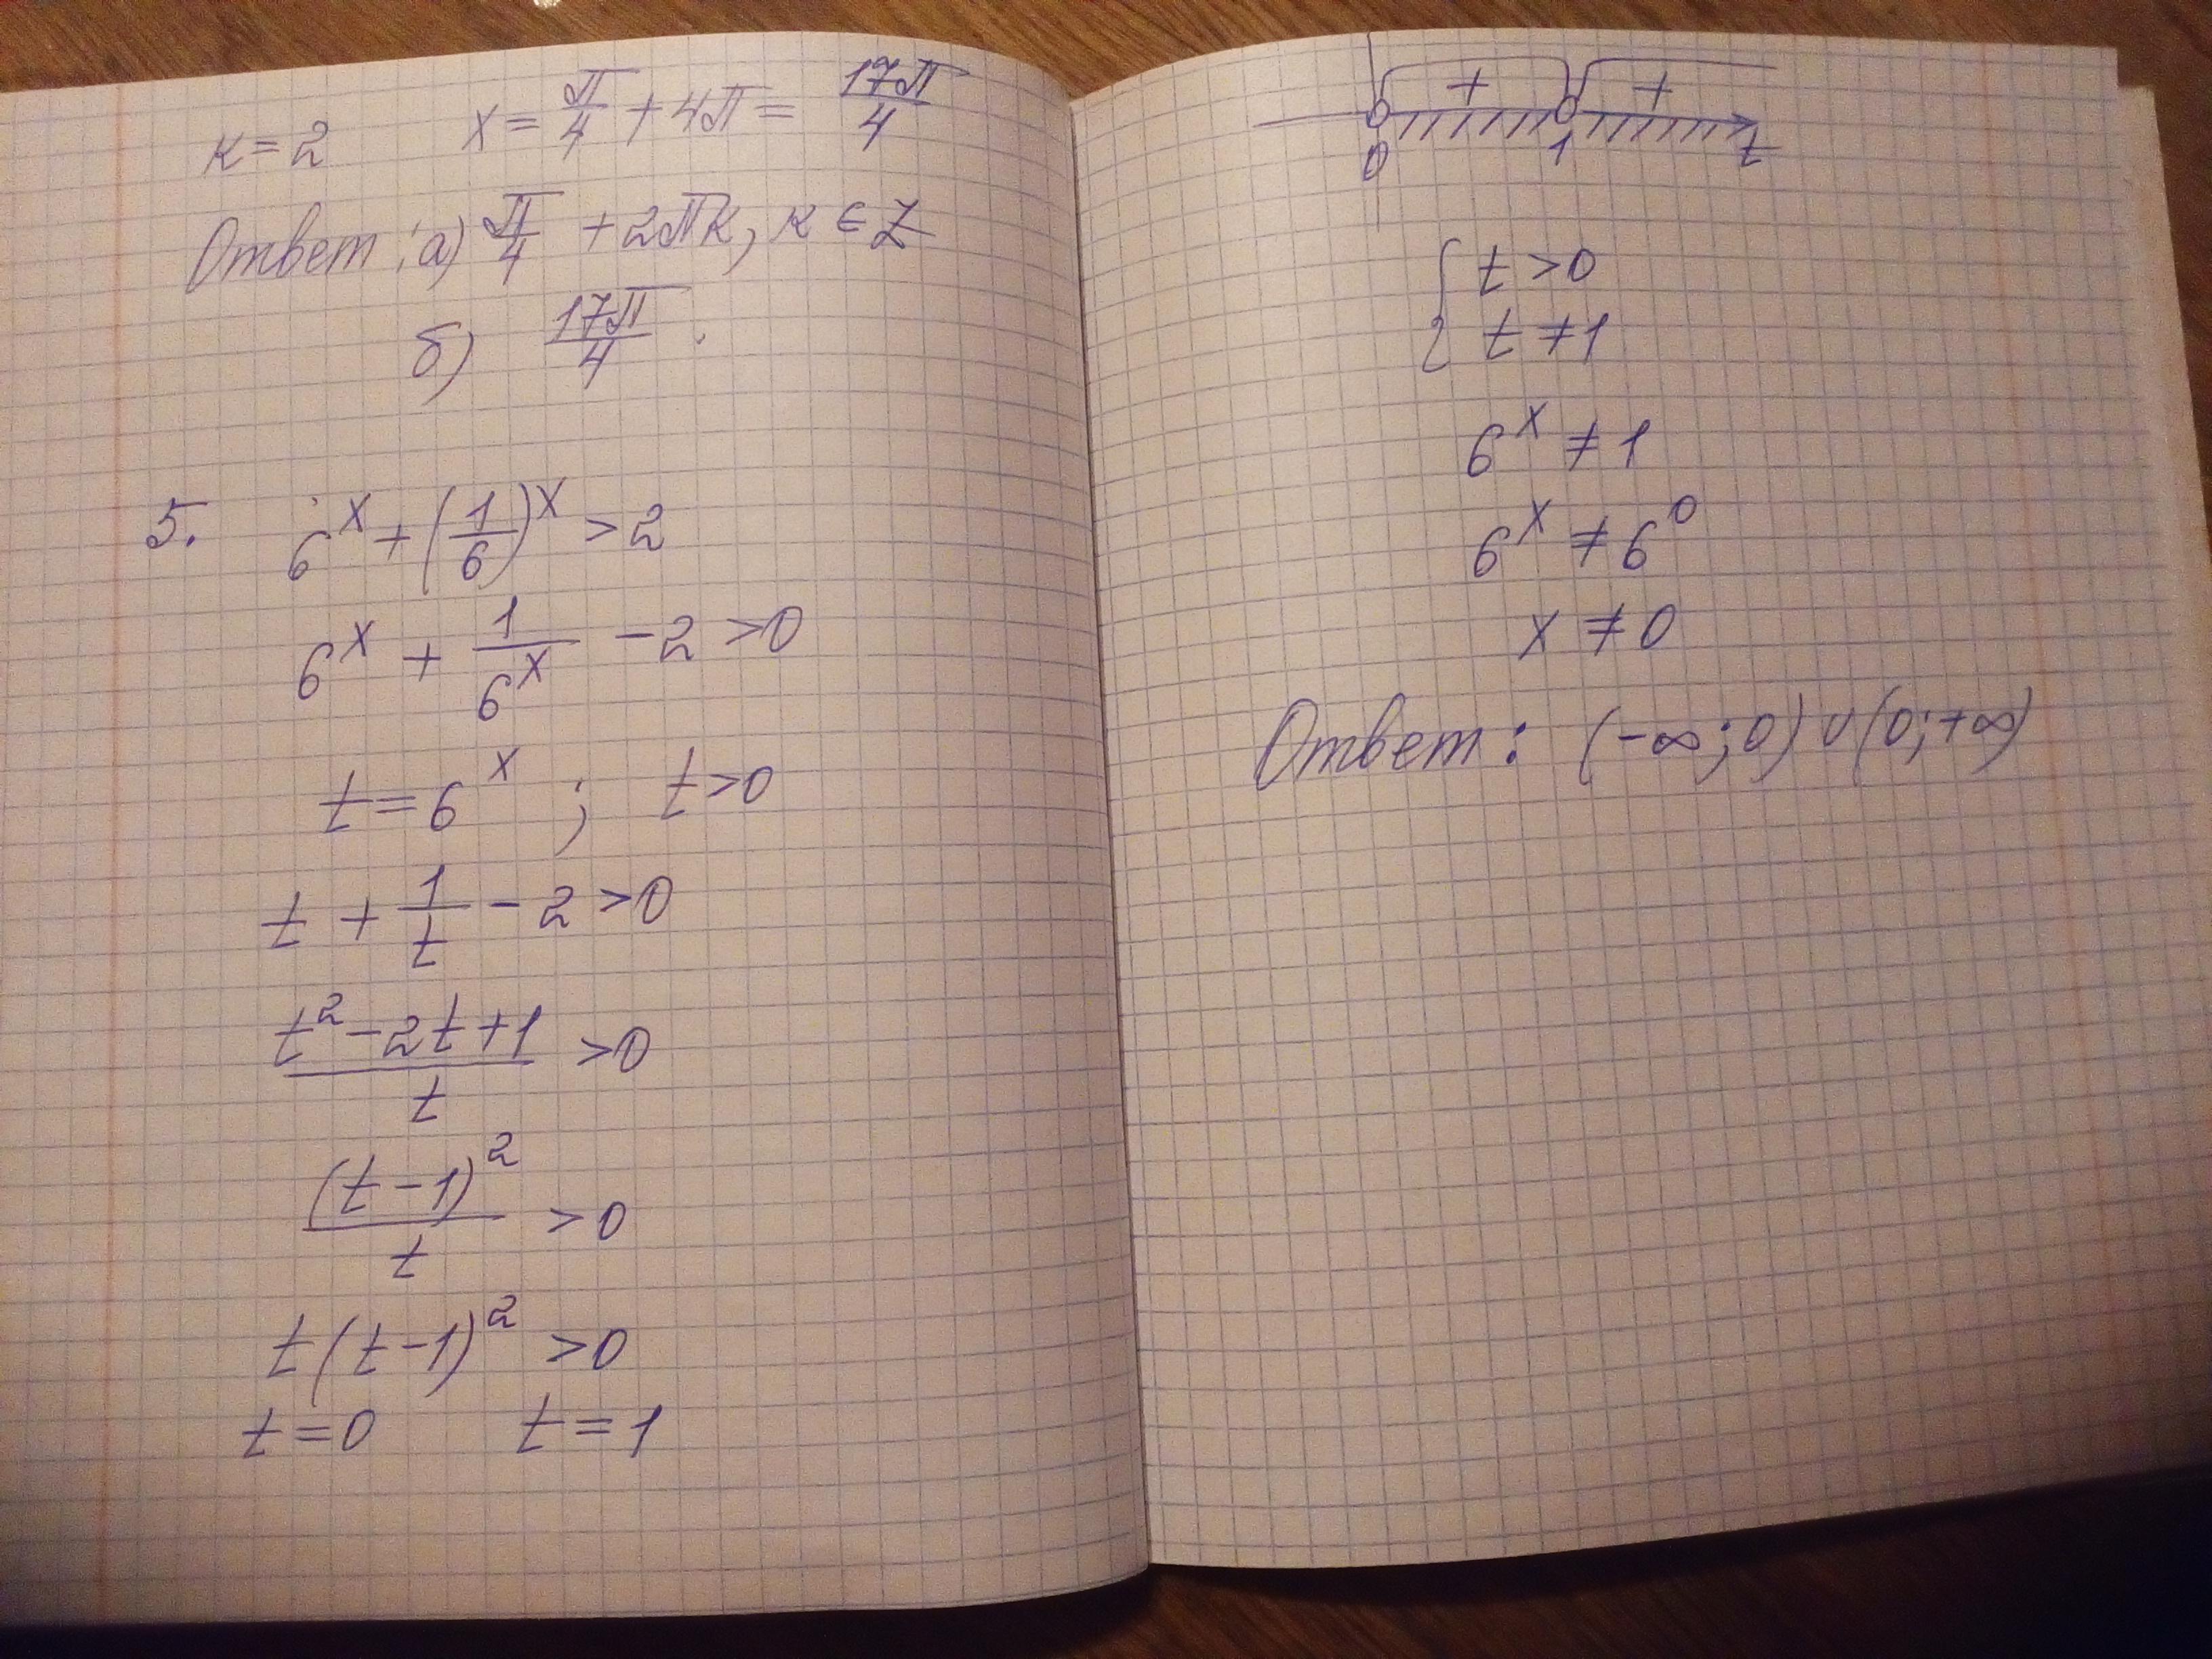 к = 2   x = π/4 + 4π = 17π/4
Ответ: а) π/4 + 2πк, к ∈ Z
б) 17π/4.
5. 6^x + (1/6)^x > 2
6^x + 1/6^x - 2 > 0
t = 6^x ; t > 0
t + 1/t - 2 > 0
(t² - 2t + 1)/t > 0
(t - 1)²/t > 0
t(t - 1)² > 0
t = 0   t = 1
+ +
0 1 t
{ t > 0
t ≠ 1
6^x ≠ 1
6^x ≠ 6^0
x ≠ 0
Ответ: (-∞; 0) ∪ (0; +∞)